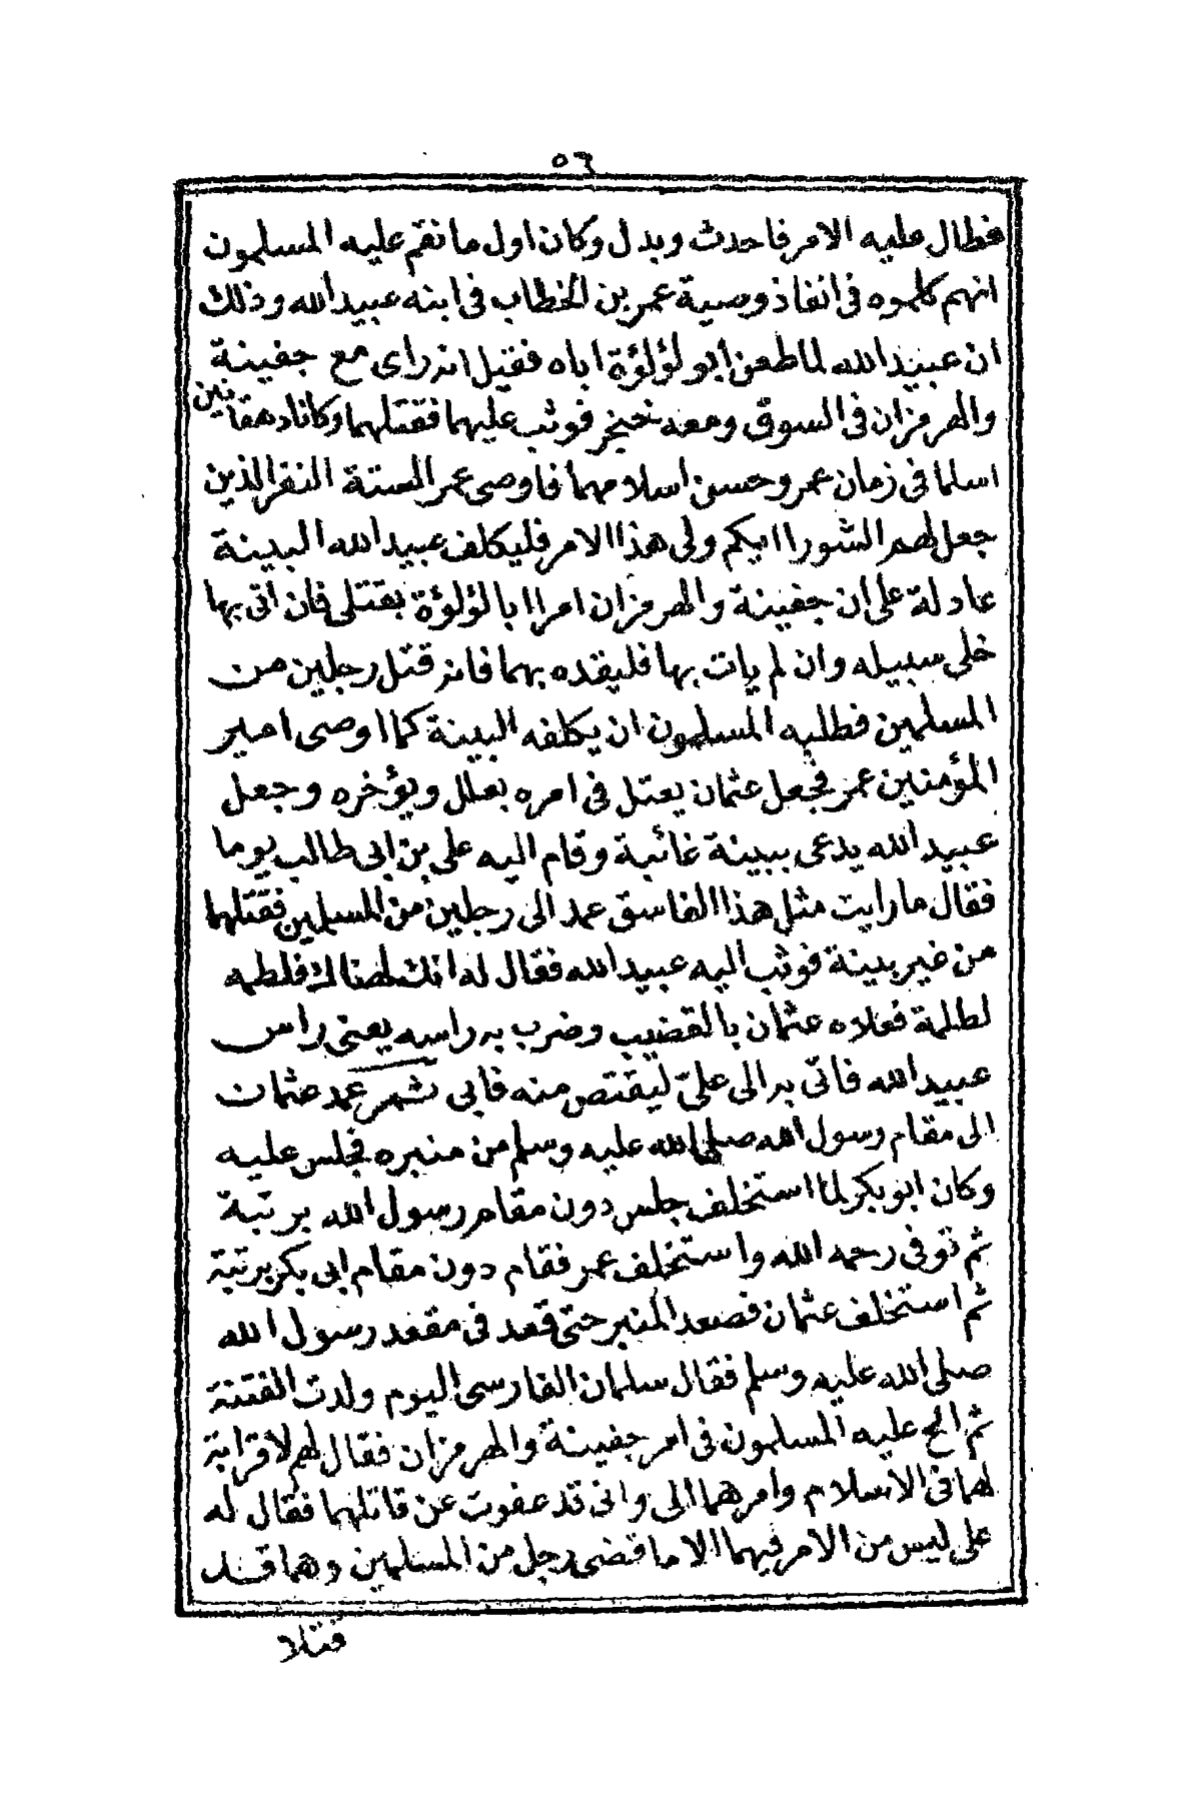 ٥٦
فطال عليه الامر فاحدث وبدل وكان اول ما نقم عليه المسلمون
انهم كلموه فى انفاذ وصية عمر بن الخطاب فى ابنه عبيد الله وذلك
ان عبيد الله لما طعن ابو لؤلؤة اباه فقيل انه راى مع جفينة
والهرمزان فى السوق ومعه خنجر فوثب عليهما فقتلهما وكانا دهقانين
اسلما فى زمان عمر وحسن اسلامهما فاوصى عمر الستة النفر الذين
جعل لهم الشورا ايكم ولى هذا الامر فليكلف عبيد الله البينة
عادلة على ان جفينة والهرمزان امرا ابا لؤلؤة بقتلى فان اتى بها
خلى سبيله وان لم يات بها فليقده بهما فانه قتل رجلين من
المسلمين فطلبه المسلمون ان يكلفه البينة كما اوصى امير
المؤمنين عمر فجعل عثمان يعتل فى امره بعلل ويؤخره وجعل
عبيد الله يدعى ببينة غائبة وقام اليه على بن ابى طالب يوما
فقال ما رايت مثل هذا الفاسق عمد الى رجلين من المسلمين فقتلهما
من غير بينة فوثب اليه عبيد الله فقال له انك لهناك فلطمه
لطلمة فعلاه عثمان بالقضيب وضرب به راسه يعنى راس
عبيد الله فاتى به الى علىّ ليقتص منه فابى ثم عمد عثمان
الى مقام رسول الله صلى الله عليه وسلم من منبره فجلس عليه
وكان ابو بكر لما استخلف جلس دون مقام رسول الله برتبة
ثم توفى رحمه الله واستخلف عمر فقام دون مقام ابى بكر برتبة
ثم استخلف عثمان فصعد المنبر حتى قعد فى مقعد رسول الله
صلى الله عليه وسلم فقال سلمان الفارسى اليوم ولدت الفتنة
ثم الح عليه المسلمون فى امر جفينة والهرمزان فقال لهم لا قرابة
لهما فى الاسلام وامرهما الى وانى قد عفوت عن قاتلهما فقال له
على ليس من الامر فيهما الا ما قضى رجل من المسلمين وهما قد
قتلا